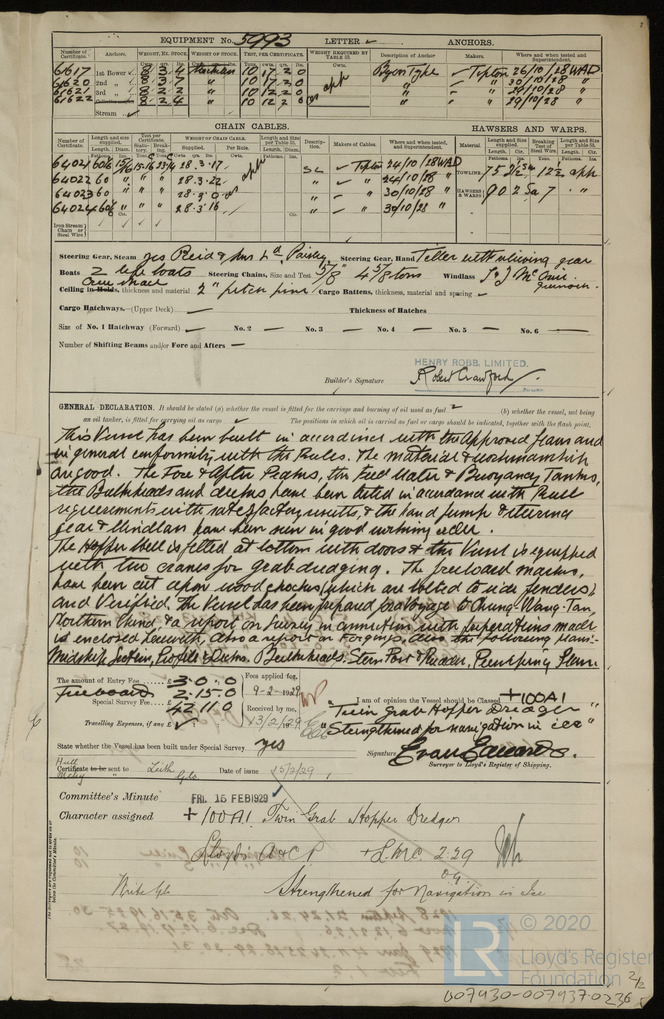 EQUIPMENT No. 5993 LETTER ANCHORS.
Number of Certificate. Anchors. WEIGHT, EX. STOCK. WEIGHT OF STOCK. TEST, PER CERTIFICATE. WEIGHT REQUIRED BY TABLE 53. Description of Anchor Makers. Where and when tested and Superintendent.
61617 1st Bower 8 3 4 Stockless 10 17 2 0 Byers Type Tipton 26/10/28 WAD
61620 2nd " " 10 17 2 0 " " 30/10/28 "
61621 3rd " 8 2 2 " 10 12 2 0 " " 29/10/28 "
61622 8 2 4 " 10 12 2 0 " " 29/10/28 "
Stream
CHAIN CABLES. HAWSERS AND WARPS.
Number of Certificate. Length and size supplied. Test per Certificate. WEIGHT OF CHAIN CABLE. Length and size per Table 53. Description. Makers of Cables. Where and when tested, and Superintendent. Material. Length and size supplied. Breaking Test of Steel Wire. Length and size per Table 53.
64021 60 28.3.17 SL Tipton 24/10/28 WAD TOWLINE 75 12½ app
64022 60 " " 28.3.22 " " 24/10/28 "
64023 60 " " 28.3.0 " " 30/10/28 " HAWSERS & WARPS 90 7 "
64024 60 28.3.16 " " 30/10/28 "
Iron Stream Chain or Steel Wire
Steering Gear, Steam yes Reid & Sons Ld Paisley Steering Gear, Hand Tiller with relieving gear
Boats 2 life boats Steering Chains, Size and Test 5/8" 4 5/8 tons Windlass
Ceiling in Holds, thickness and material 2" pitch pine Cargo Battens, thickness, material and spacing
Cargo Hatchways.—(Upper Deck) Thickness of Hatches
Size of No. 1 Hatchway (Forward) No. 2 No. 3 No. 4 No. 5 No. 6
Number of Shifting Beams and/or Fore and Afters
HENRY ROBB, LIMITED.
Builder's Signature Robert Crawford
GENERAL DECLARATION. It should be stated (a) whether the vessel is fitted for the carriage and burning of oil used as fuel (b) whether the vessel, not being
an oil tanker, is fitted for carrying oil as cargo The positions in which oil is carried as fuel or cargo should be indicated, together with the flash point.
This Vessel has been built in accordance with the approved plans and
in general conformity with the Rules. The material & workmanship
are good. The Fore & After Peaks, the Feed Water & Buoyancy Tanks,
the Bulkheads and decks have been tested in accordance with Rule
requirements with satisfactory results, & the hand pump & steering
gear & Windlass have been seen in good working order.
The Hopper Well is fitted at bottom with doors & this Vessel is equipped
with two cranes for grab dredging. The freeboard marks,
have been cut upon wood chocks (which are bolted to side fenders)
and Verified. The Vessel has been prepared for Voyage to Chung-Wang-Tan,
Northern China & a report on Survey in connection with preparations made
is enclosed herewith, also a report on Forgings, also the following plans:
Midship Section, Profile & Decks, Bulkheads, Stern Post & Rudder, Pumping Plan.
The amount of Entry Fee £3.0.0 Fees applied for,
Freeboard 2.15.0 9-2-1929
Special Survey Fee £42.11.0 Received by me,
Travelling Expenses, if any £ 13/2/29
I am of opinion the Vessel should be Classed +100A1
"Twin Grab Hopper Dredger"
"Strengthened for navigation in ice"
State whether the Vessel has been built under Special Survey yes
Signature
Surveyor to Lloyd's Register of Shipping.
Certificate to be sent to Leith Date of issue 15/2/29
Committee's Minute FRI. 15 FEB 1929
Character assigned +100A1. Twin Grab Hopper Dredger
Lloyd's A&CP +LMC 2.29
Strengthened for Navigation in Ice
© 2020
LR
Lloyd's Register
Foundation
007930-007937-0236 2/2